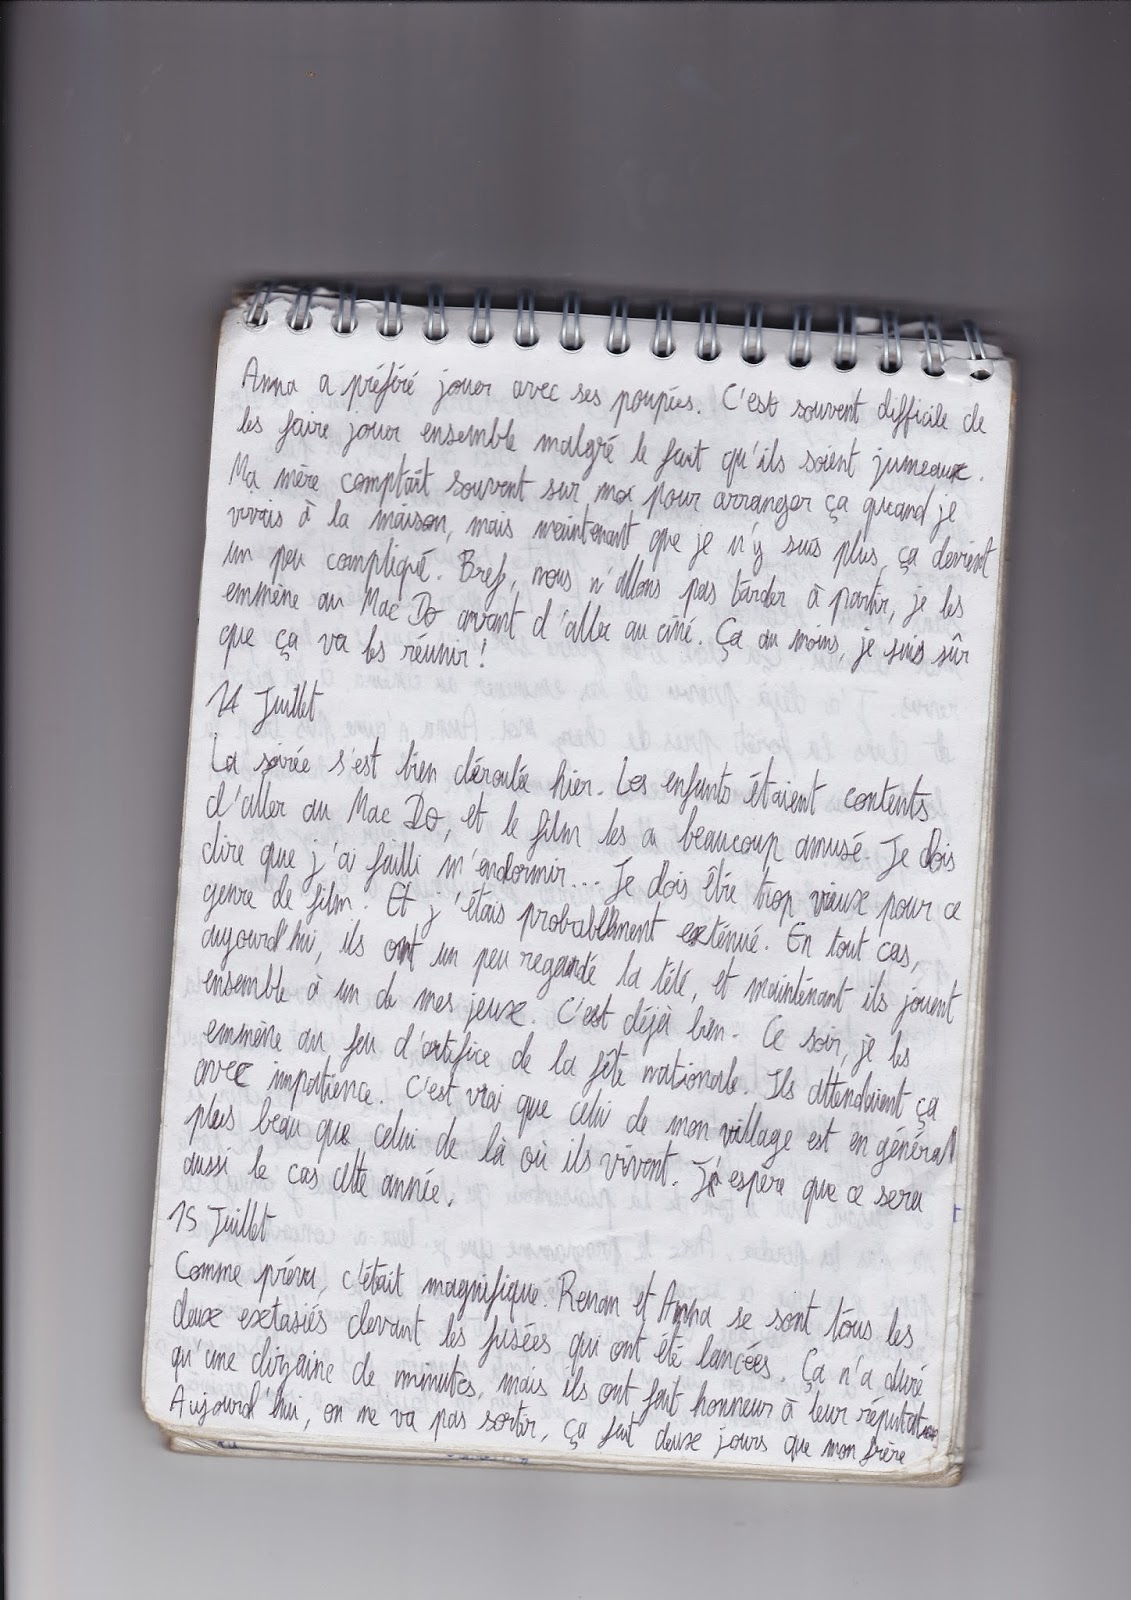 Anna a préféré jouer avec ses poupées. C'est souvent difficile de
les faire jouer ensemble malgré le fait qu'ils soient jumeaux.
Ma mère comptait souvent sur moi pour arranger ça quand je
vivais à la maison, mais maintenant que je n'y suis plus, ça devient
un peu compliqué. Bref, nous n'allons pas tarder à partir, je les
emmène au Mac Do avant d'aller au ciné. Ça au moins, je suis sûr
que ça va les réunir !
14 Juillet
La soirée s'est bien déroulée hier. Les enfants étaient contents
d'aller au Mac Do, et le film les a beaucoup amusé. Je dois
dire que j'ai failli m'endormir... Je dois être trop vieux pour ce
genre de film. Et j'étais probablement exténué. En tout cas,
aujourd'hui, ils ont un peu regardé la télé, et maintenant ils jouent
ensemble à un de mes jeux. C'est déjà bien. Ce soir, je les
emmène au feu d'artifice de la fête nationale. Ils attendaient ça
avec impatience. C'est vrai que celui de mon village est en général
plus beau que celui de là où ils vivent. J'espère que ce sera
aussi le cas cette année.
15 Juillet
Comme prévu, c'était magnifique. Renan et Anna se sont tous les
deux extasiés devant les fusées qui ont été lancées. Ça n'a duré
qu'une dizaine de minutes, mais ils ont fait honneur à leur réputation
Aujourd'hui, on ne va pas sortir, ça fait deux jours que mon frère